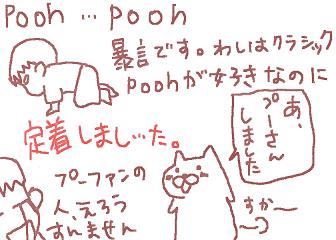 Pooh … pooh
暴言です。わしはクラシック
poohが好きなのに
定着しまし…た。
あ、
プーさん
しました
プーファンの
人、えろう
すんません
すかー
〜っ